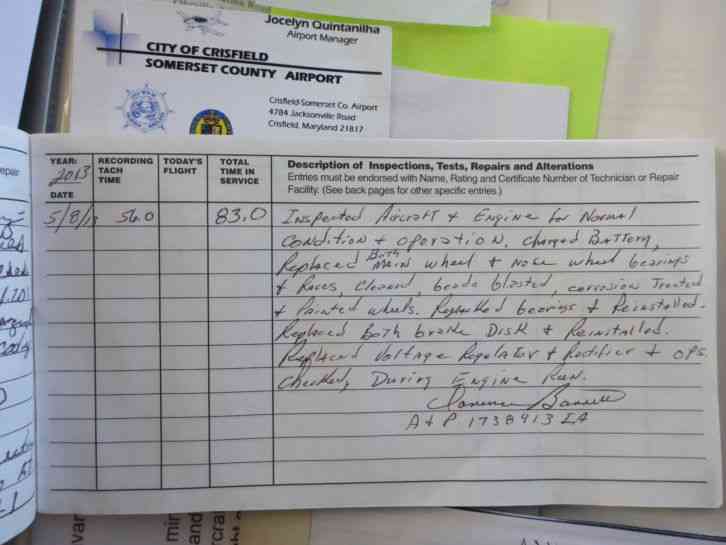 Jocelyn Quintanilha
Airport Manager
CITY OF CRISFIELD
SOMERSET COUNTY AIRPORT
Crisfield-Somerset Co. Airport
4784 Jacksonville Road
Crisfield, Maryland 21817
YEAR:
2013
DATE
RECORDING
TACH
TIME
TODAY'S
FLIGHT
TOTAL
TIME IN
SERVICE
Description of Inspections, Tests, Repairs and Alterations
Entries must be endorsed with Name, Rating and Certificate Number of Technician or Repair
Facility. (See back pages for other specific entries.)
5/8/13 56.0 83.0 Inspected Aircraft & Engine for Normal
Condition & operation, charged Battery,
Replaced Both Main wheel & Nose wheel bearings
& Races, Cleaned, beade blasted, corrosion Treated
& Painted wheels. Repacked bearings & Reinstalled.
Replaced Both brake Disk & Reinstalled.
Replaced Voltage Regulator & Rectifier & ops
Checked, During Engine Run.
Clarence
A&P 1738413 IA
epair
min
and
rcra